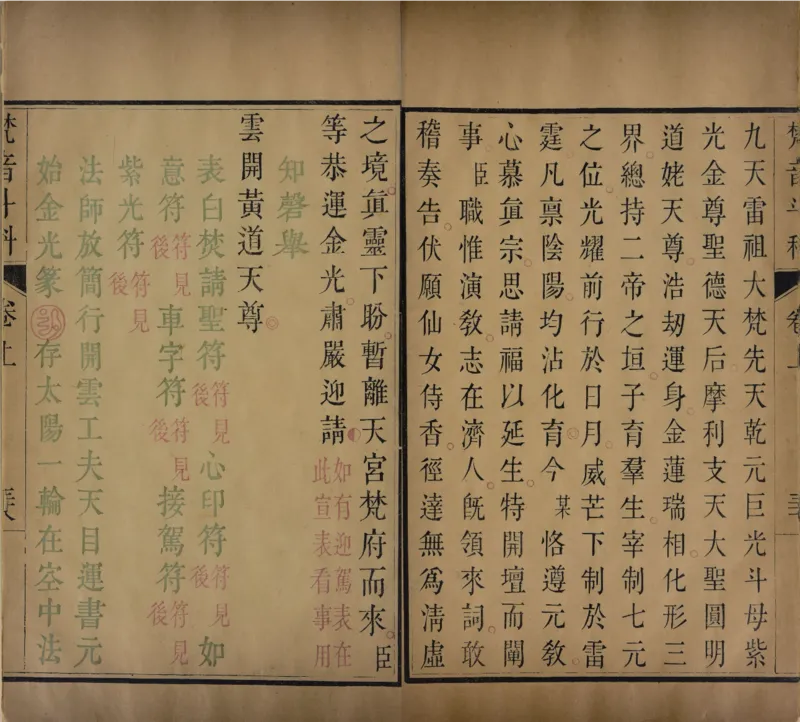 九天雷祖大梵先天乾元巨光斗母紫
光金尊聖德天后摩利支天大聖圓明
道姥天尊浩劫運身金蓮瑞相化形三
界總持二帝之垣子育羣生宰制七元
之位光耀前行於日月威芒下制於雷
霆凡禀陰陽均沾化育今某恪遵元教
心慕眞宗思請福以延生特開壇而闡
事臣職惟演教志在濟人旣領來詞敢
稽奏告伏願仙女侍香徑達無爲淸虛
之境眞靈下盼暫離天宮梵府而來臣
等恭運金光肅嚴迎請如有迎駕表在此宣表看事用
知磬舉
雲開黃道天尊
表白焚請聖符符見後心印符符見後如
意符符見後車字符符見後接駕符符見後
紫光符符見後
法師放簡行開雲工夫天目運書元
始金光篆存太陽一輪在空中法
梵音斗科
卷上
梵音斗科
卷上